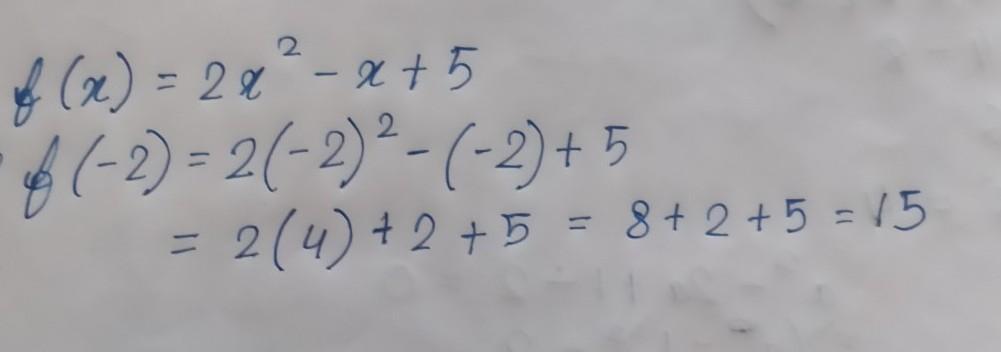 f(x) = 2x² - x + 5
f(-2) = 2(-2)² - (-2) + 5
= 2(4) + 2 + 5 = 8 + 2 + 5 = 15